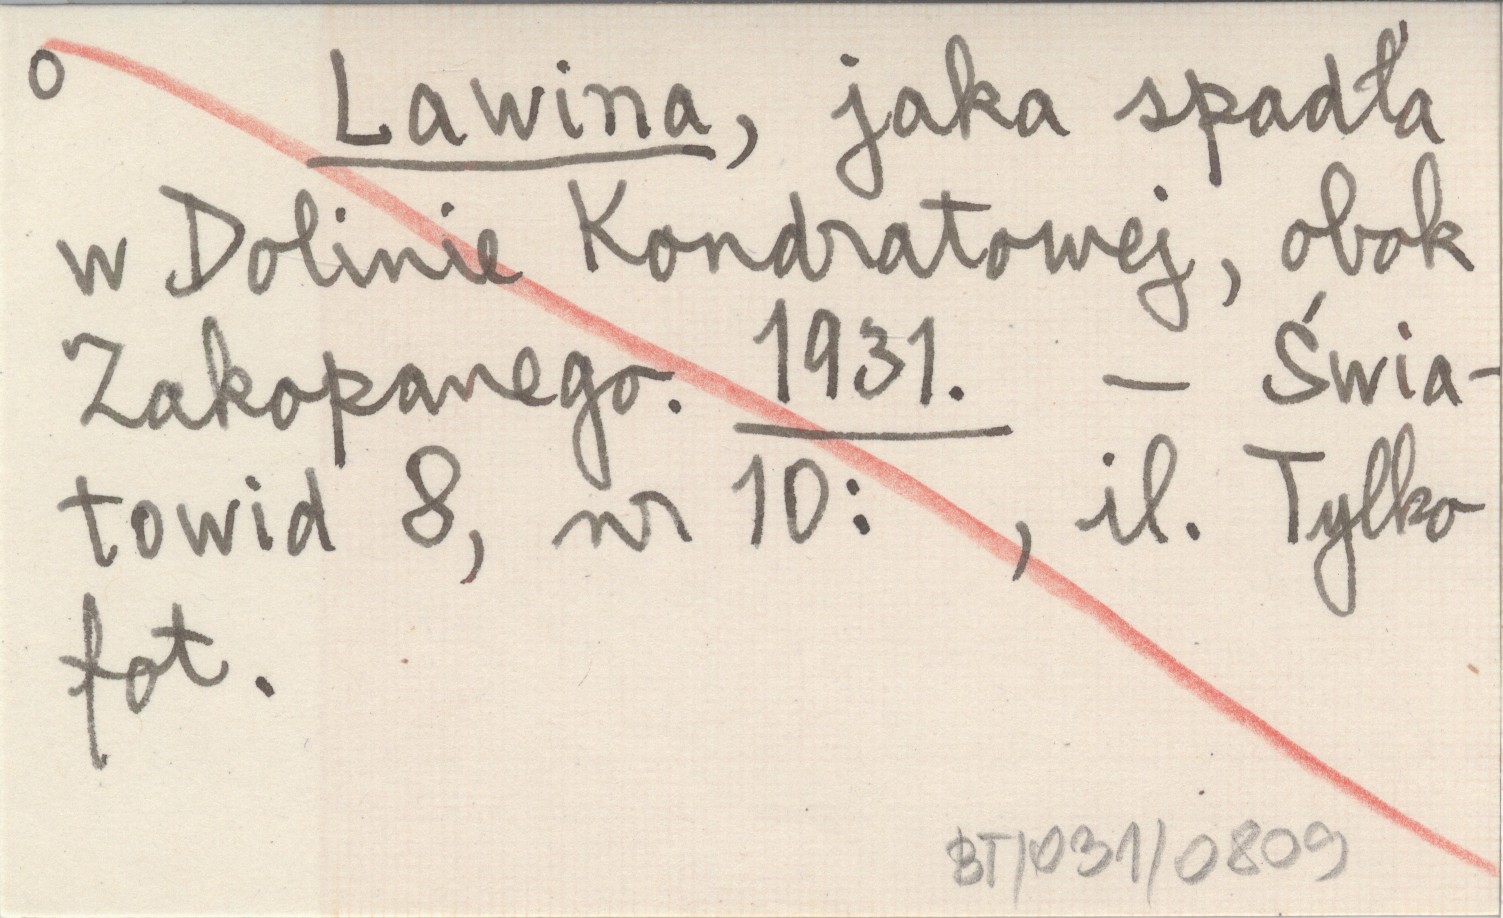 o Lawina, jaka spadła
w Dolinie Kondratowej, obok
Zakopanego. 1931. — Świa-
towid 8, nr 10: , il. Tylko
fot.
BT/031/0809